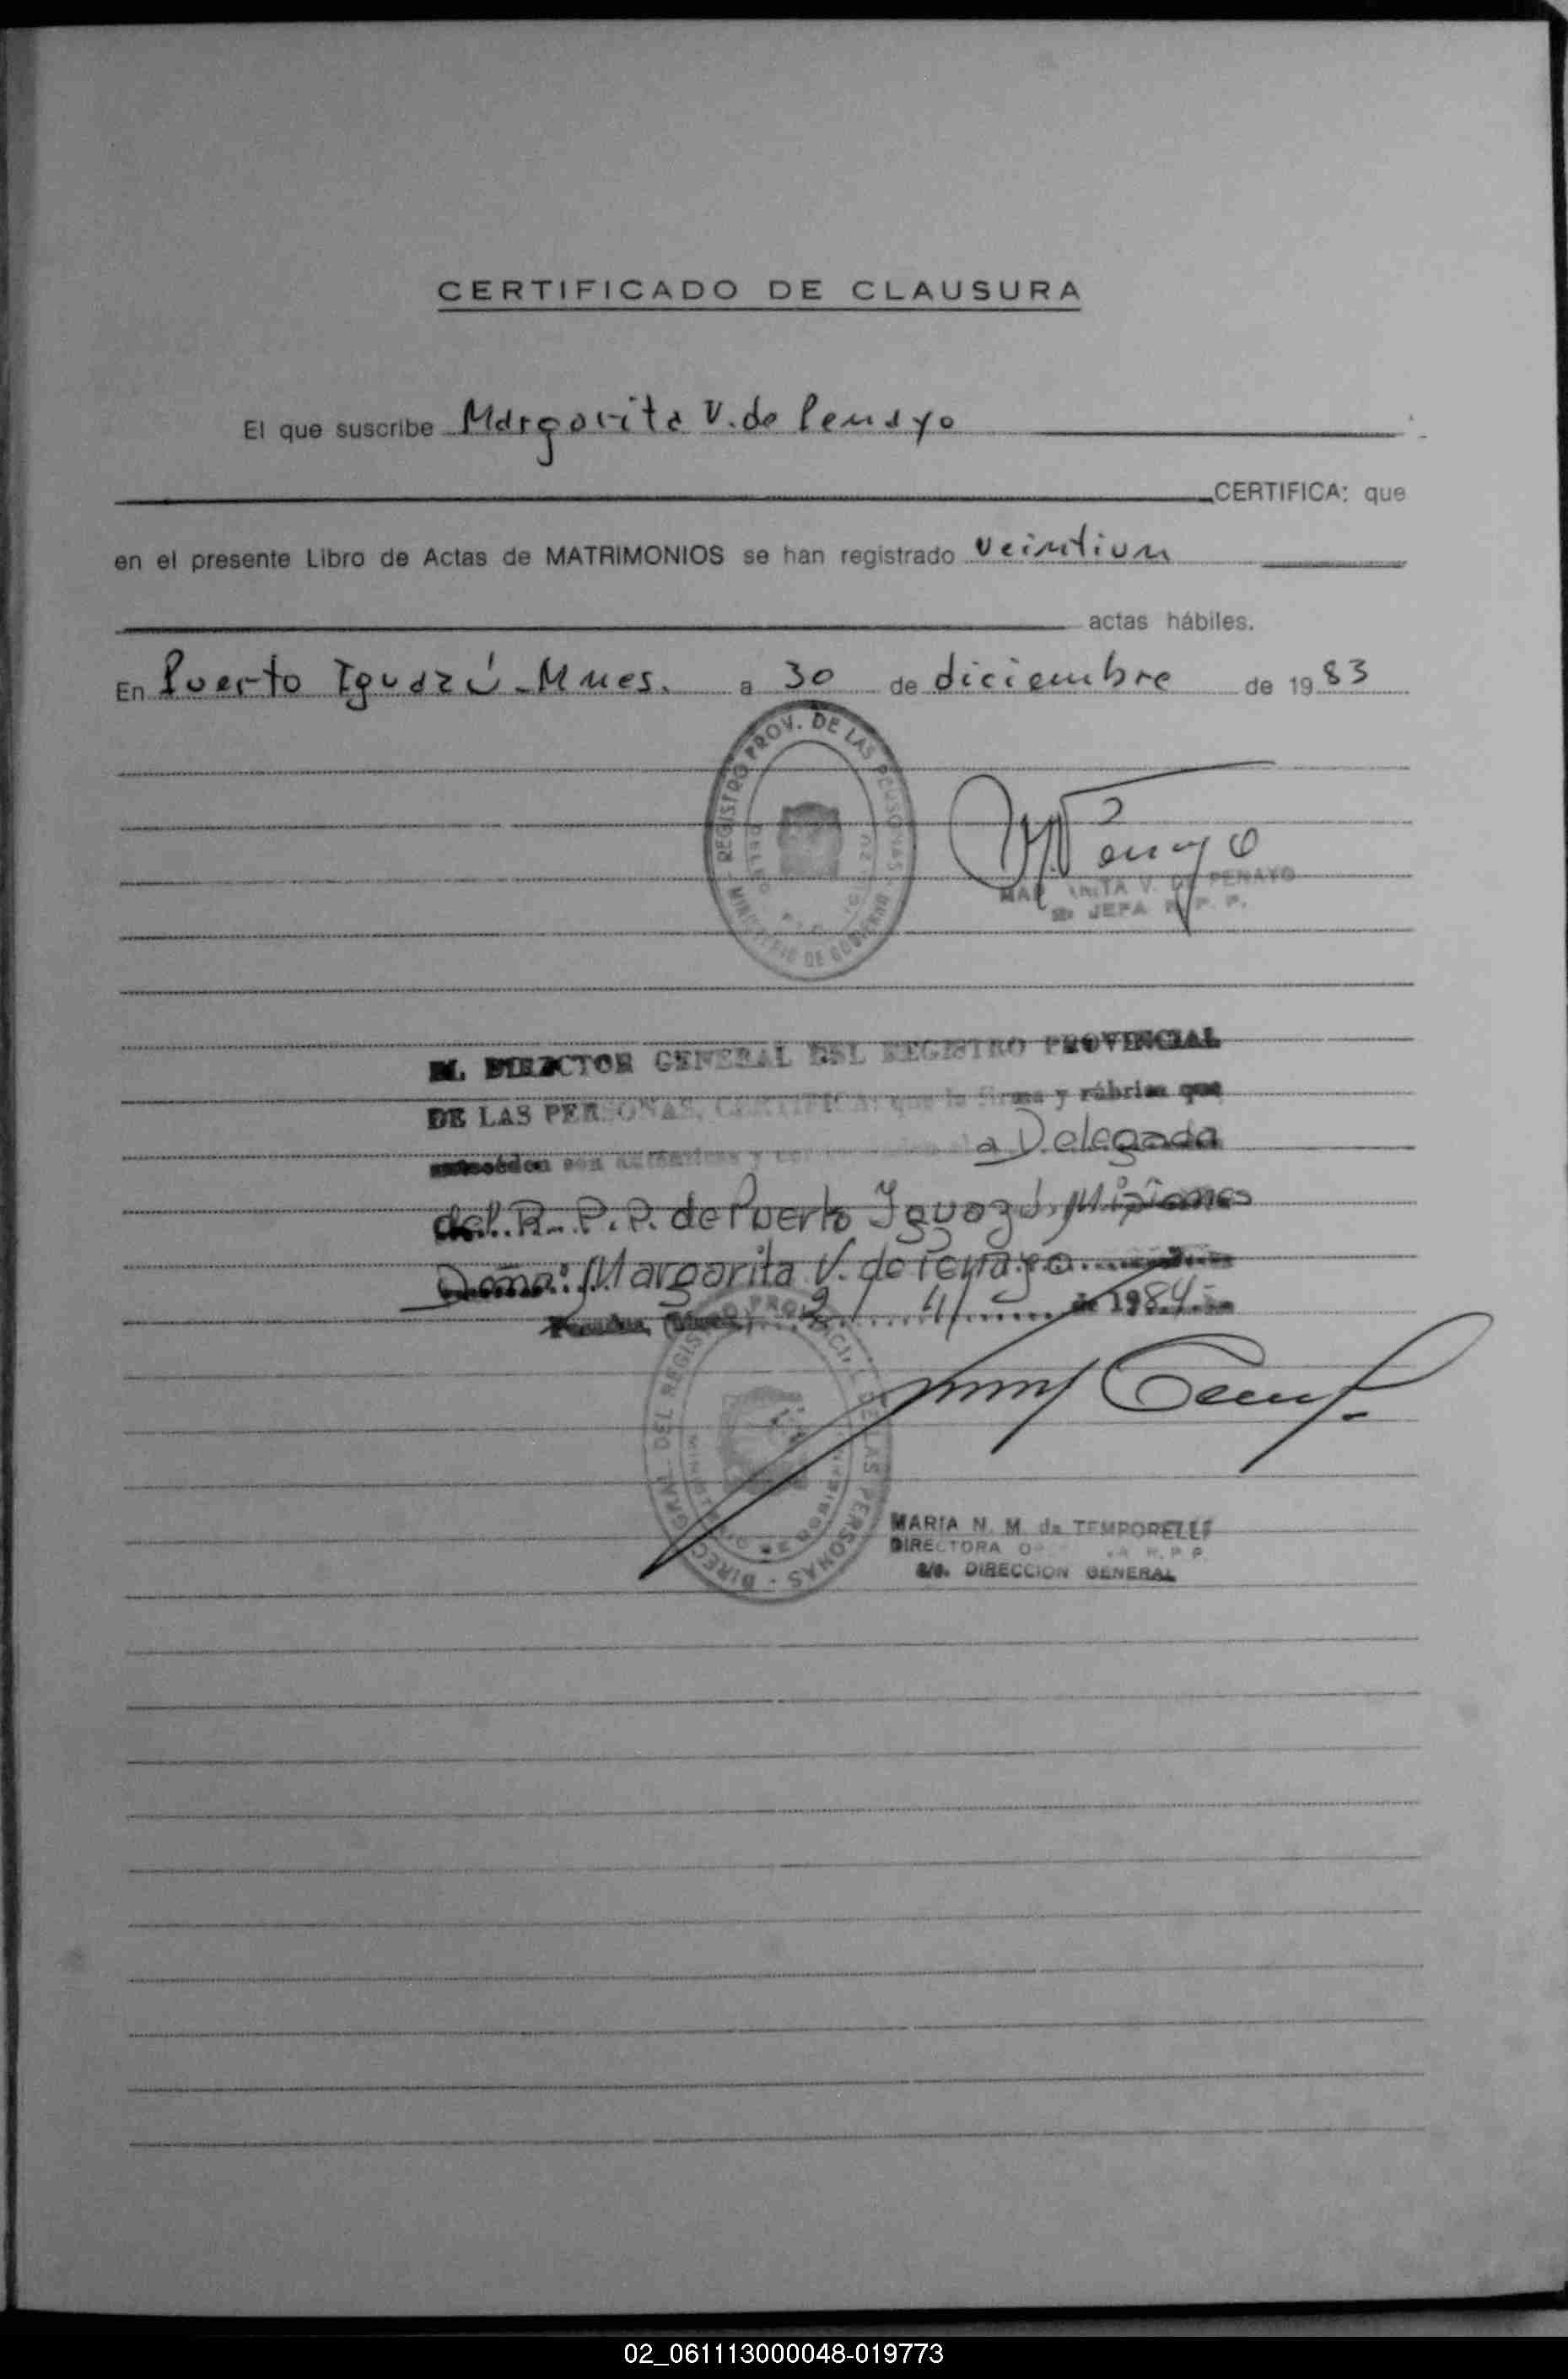 CERTIFICADO DE CLAUSURA
El que suscribe Margarita V. de Penayo
CERTIFICA: que
en el presente Libro de Actas de MATRIMONIOS se han registrado veintiun
actas hábiles.
En Puerto Iguazú - Mnes. a 30 de diciembre de 1983
REGISTRO PROV. DE LAS PERSONAS
MINISTERIO DE GOBIERNO
Penayo
MAR ITA V. DE PENAYO
JEFA R. P. P.
EL DIRECTOR GENERAL DEL REGISTRO PROVINCIAL
DE LAS PERSONAS, CERTIFICA: que la firma y rúbrica que
anteceden son auténticas y a Delegada
del R. P. P. de Puerto Iguazú, Misiones
Doña: Margarita V. de Penayo
Posadas, (Mnes.) 2 / 4 / de 1984
DIRECC GRAL. DEL REGISTRO PROVINCIAL DE LAS PERSONAS
MARIA N. M. de TEMPORELLI
DIRECTORA R. P. P.
a/c. DIRECCION GENERAL
02_061113000048-019773